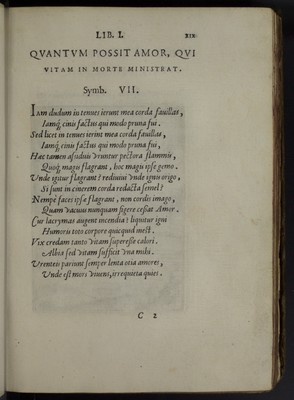 LIB. I.
QVANTVM POSSIT AMOR, QVI
VITAM IN MORTE MINISTRAT.
Symb. VII.
Iam dudum in tenues ierunt mea corda fauillas,
Iamq́; cinis factus qui modo pruna fui.
Sed licet in tenues ierint mea corda fauillas,
Iamq́; cinis factus qui modo pruna fui,
Hac tamen assiduis vruntur pectora flammis,
Quoq́; magis flagrant, hoc magis ipse gemo.
Vnde igitur flagrant? rediuiui vnde ignis origo,
Si sunt in cinerem corda redacta semel?
Nempe faces ipsæ flagrant, non cordis imago,
Quam vacuus nunquam figere cessat Amor.
Cur lacrymas augent incendia? liquitur igni
Humoris toto corpore quicquid inest.
Vix credam tanto vitam superesse calori.
Alitia sed vitam sufficit vna mihi.
Vrentes pariunt semper lenta otia amores,
Vnde est mors viuens, irrequieta quies.
C 2